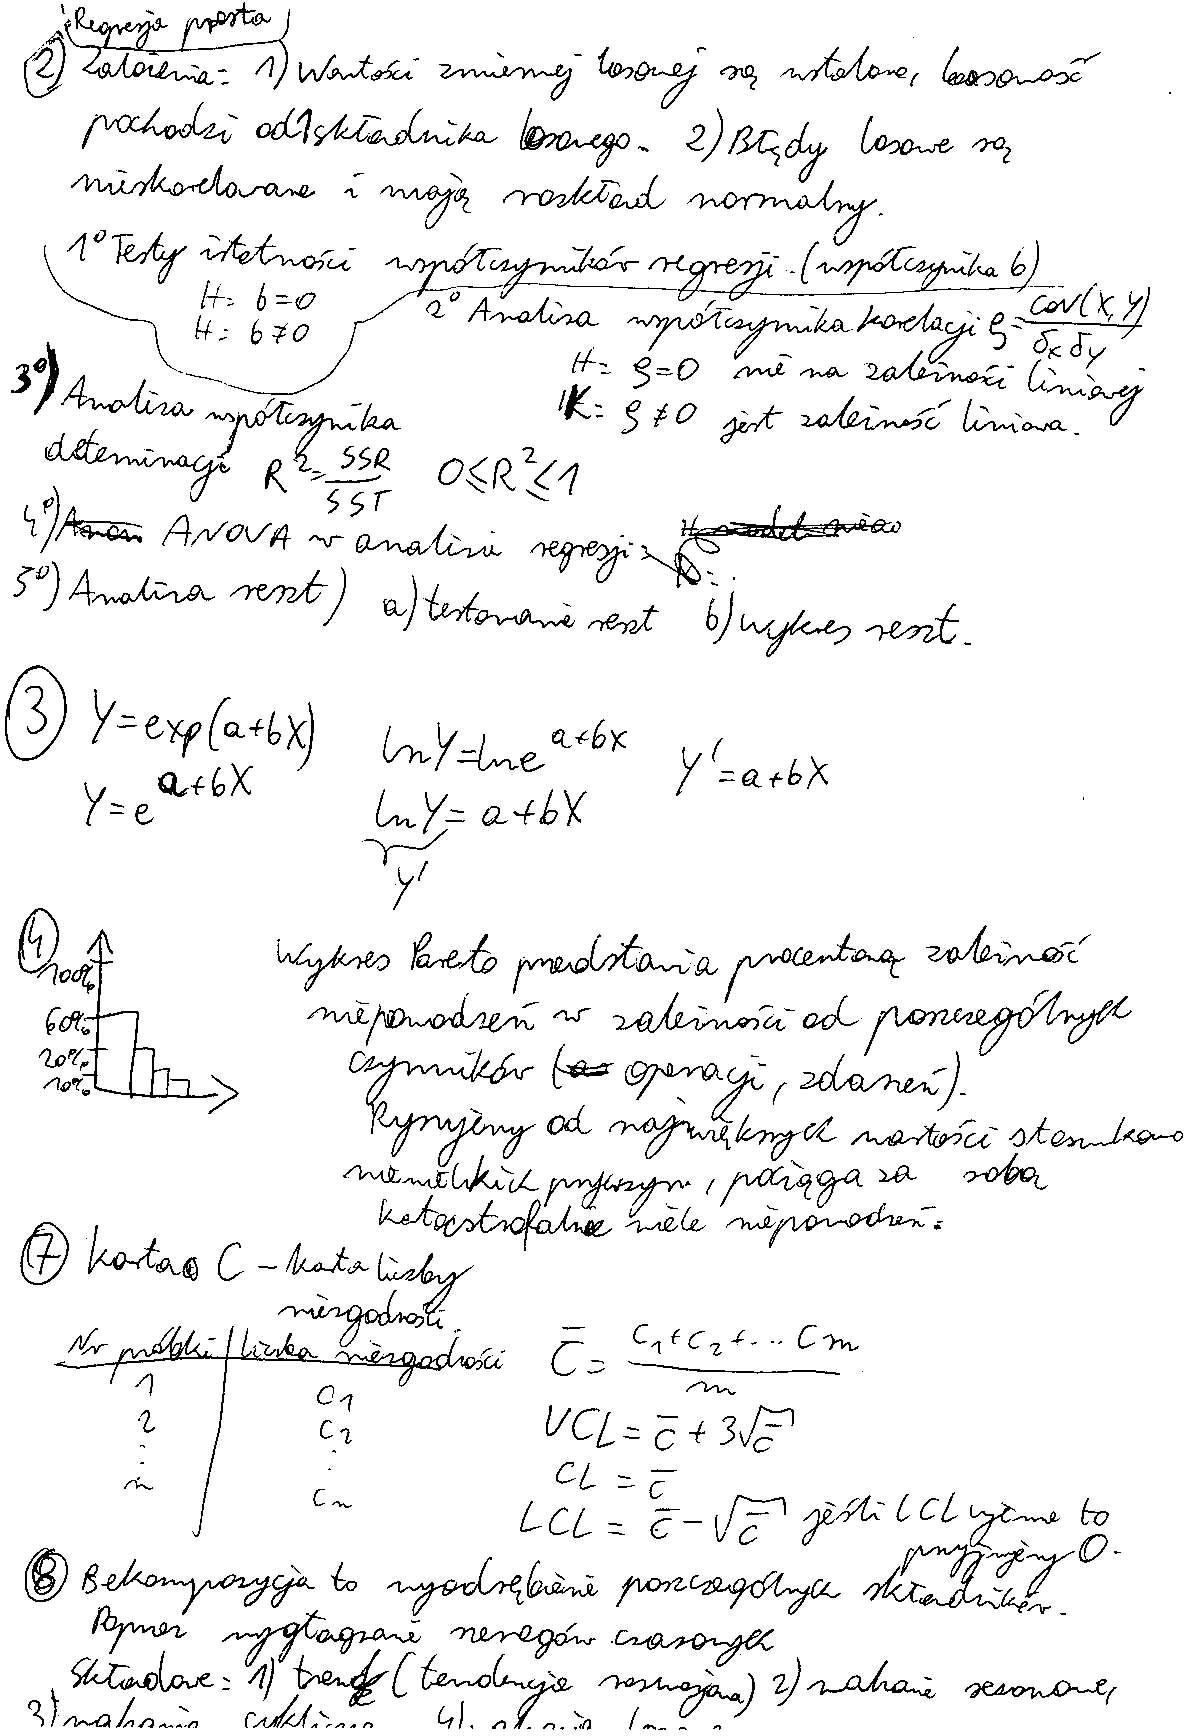 Regresja prosta
2) Założenia: 1) Wartości zmiennej losowej są ustalone, losowość
pochodzi od 1 składnika losowego. 2) Błędy losowe są
nieskorelowane i mają rozkład normalny.
1° Testy istotności współczynników regresji. (współczynnika b)
H: b=0
H: b≠0
2° Analiza współczynnika korelacji ρ = cov(X,Y)
δx δy
H: ρ=0 nie ma zależności liniowej
K: ρ≠0 jest zależność liniowa.
3°) Analiza współczynnika
determinacji R²= SSR 0≤R²≤1
SST
4°) ANOVA w analizie regresji:
5°) Analiza reszt) a) testowanie reszt b) wykres reszt.
3 Y=exp(a+bX) lnY=lne^{a+bx} Y'=a+bX
Y=e^{a+bX} lnY=a+bX
Y'
4
100%
60%
20%
10%
Wykres Pareto przedstawia procentową zależność
niepowodzeń w zależności od poszczególnych
czynników (operacji, zdarzeń).
Rysujemy od największych wartości stosunkowo
niewielkich przyczyn, pociąga za sobą
katastrofalnie wiele niepowodzeń.
7 Karta C – karta liczby
niezgodności.
Nr próbki | liczba niezgodności
1 c1
2 c2
: :
n cn
C̄ = C1+C2+... Cm
m
UCL = c̄ + 3√c̄
CL = c̄
LCL = c̄ - √c̄ jeśli LCL ujemne to
przyjmujemy 0.
8 Dekompozycja to wyodrębienie poszczególnych składników.
Poprzez wygładzanie szeregów czasowych
Składowe: 1) trend (tendencja rozwojowa) 2) wahanie sezonowe,
3) wahania cykliczne 4)